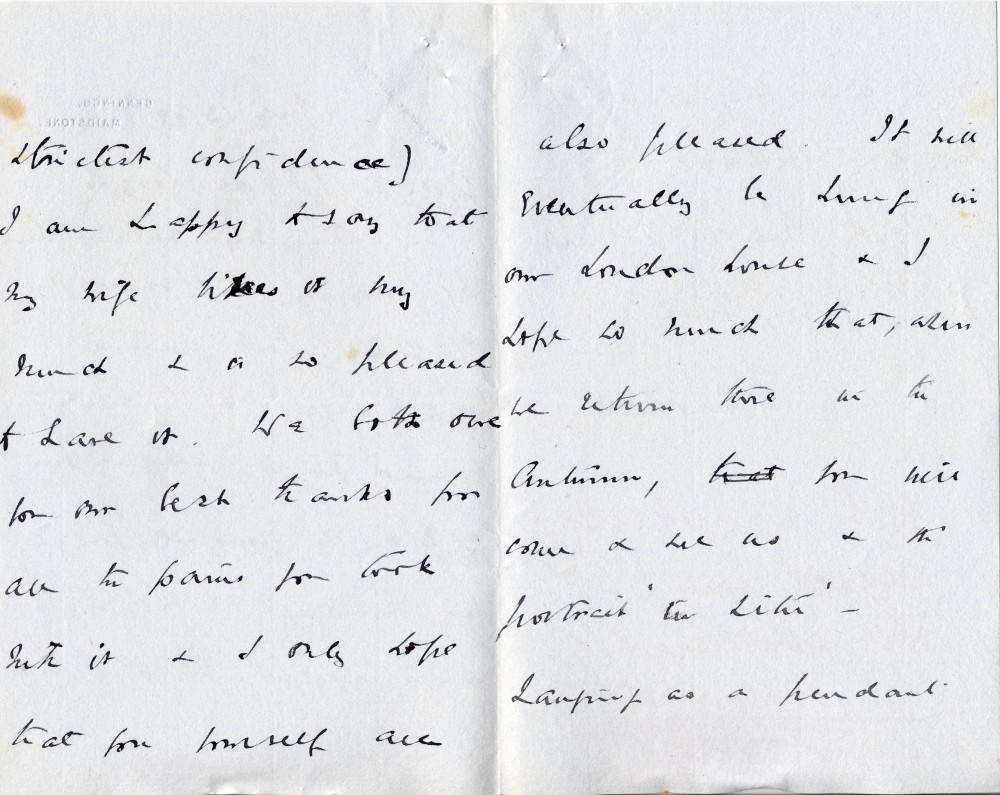 GENNINGS.
MAIDSTONE.
strictest confidence)
I am happy to say that
my wife likes it very
much & is so pleased
to have it. We both owe
you our best thanks for
all the pains you took
with it & I only hope
that you yourself are
also pleased. It will
eventually be hung in
our London house & I
hope so much that, when
we return there in the
Autumn, that you will
come & see us & the
portrait "in situ" –
Hanging as a pendant